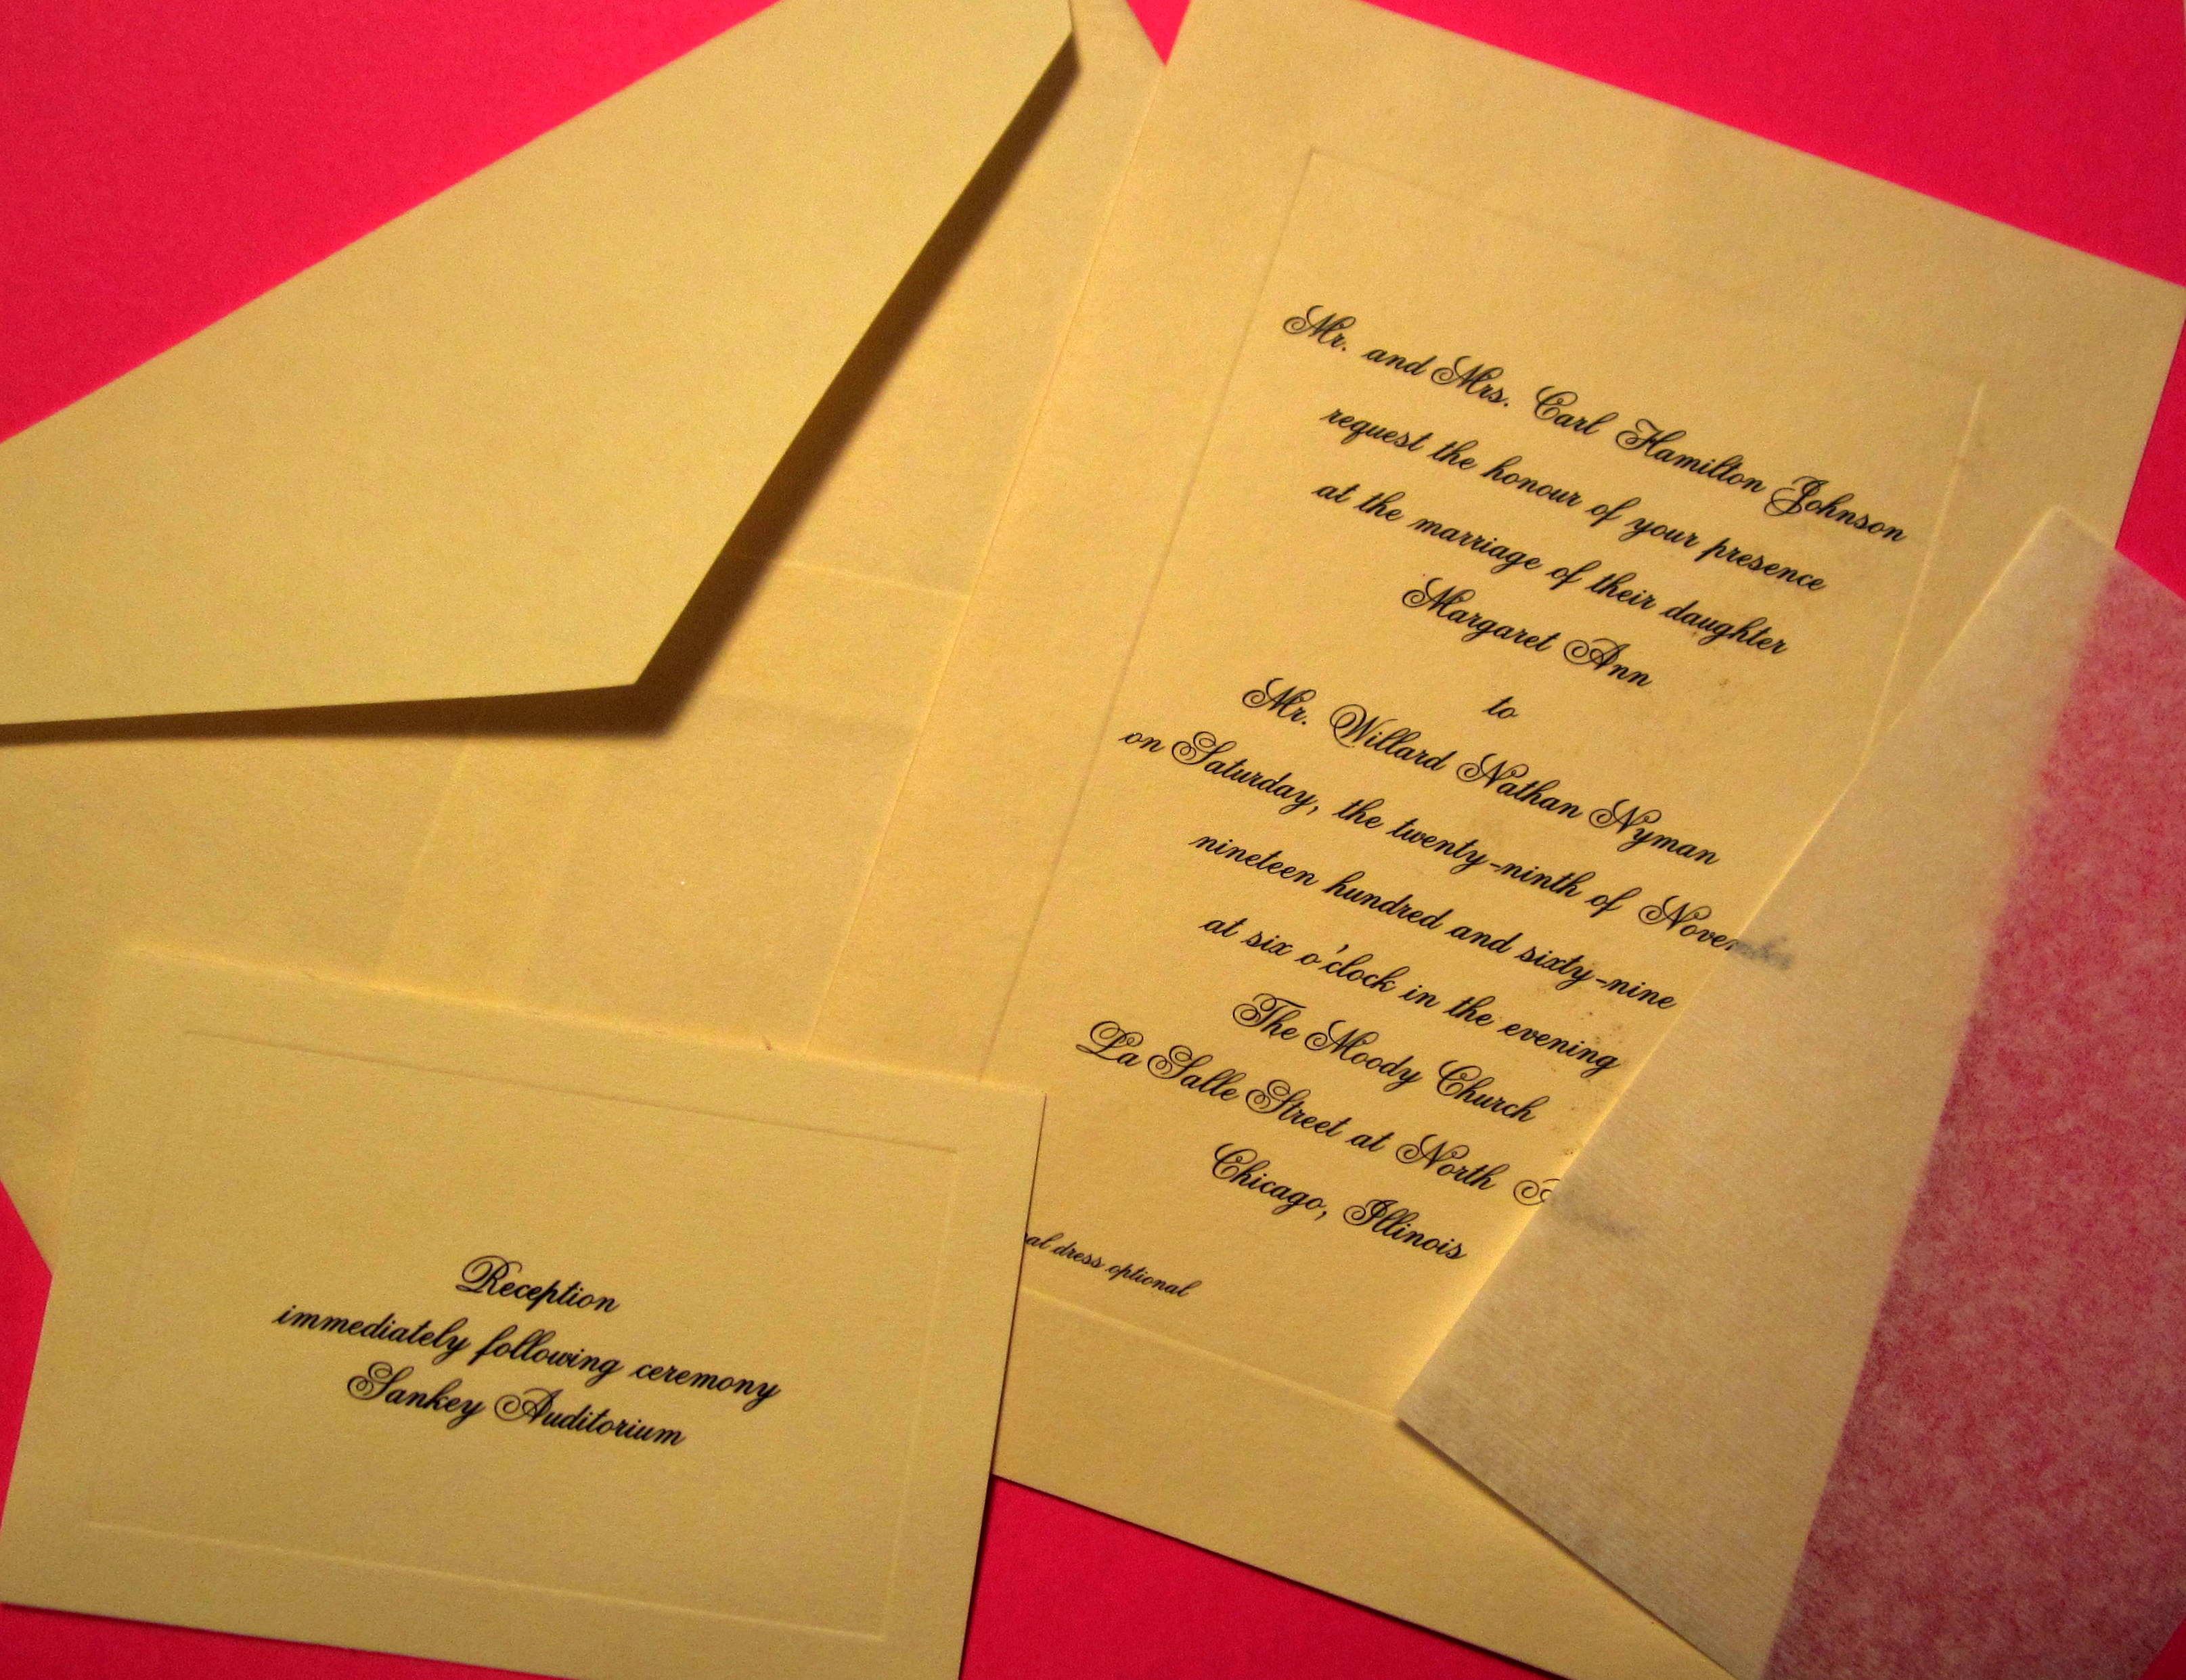 Mr. and Mrs. Carl Hamilton Johnson
request the honour of your presence
at the marriage of their daughter
Margaret Ann
to
Mr. Willard Nathan Nyman
on Saturday, the twenty-ninth of November
nineteen hundred and sixty-nine
at six o'clock in the evening
The Moody Church
La Salle Street at North
Chicago, Illinois
dress optional
Reception
immediately following ceremony
Sankey Auditorium